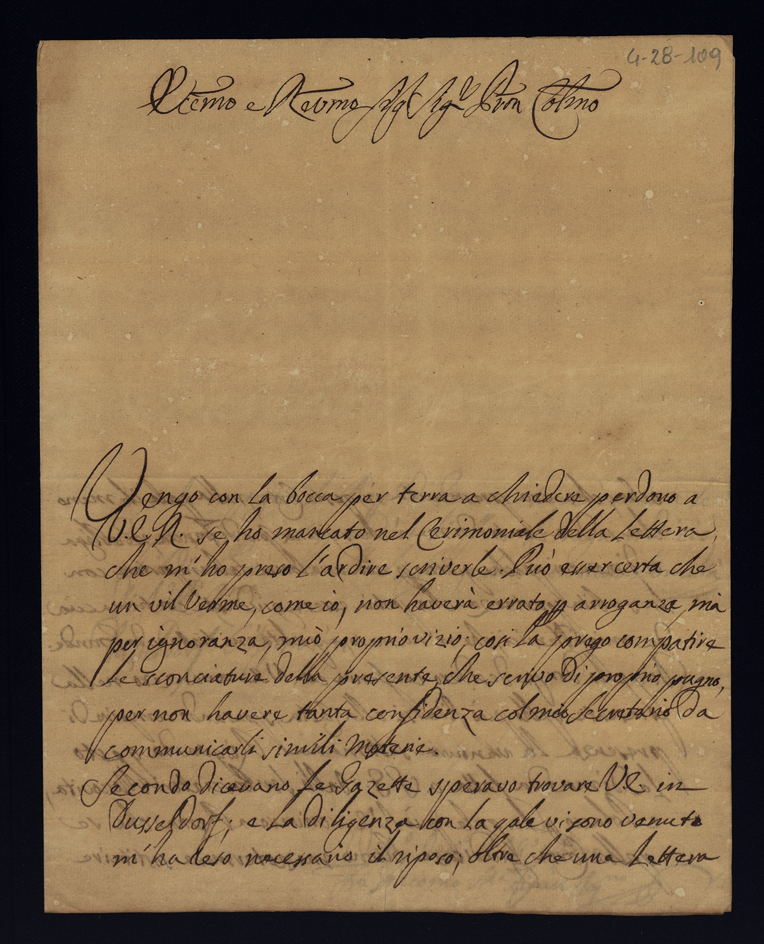 4-28-109
Emo e Revmo Sig. Sigr Pron Colmo
Vengo con la bocca per terra a chiedere perdono a
V.E.R. se ho mancato nel Cerimoniale della Lettera,
che m'ho preso l'ardire scriverle. Può esser certa che
un vil Verme, come io, non haverà errato p arroganza mà
per ignoranza, mio proprio vizio; così la prego compatire
le sconciature della presente, che scrivo di proprio pugno,
per non havere tanta confidenza col mio secretario da
communicarli simili materie.
Secondo dicevano le Gazette speravo trovare V.E. in
Dusseldorf; e la diligenza con la qale vi sono venuto
m'ha reso necessario il riposo; oltre che una Lettera